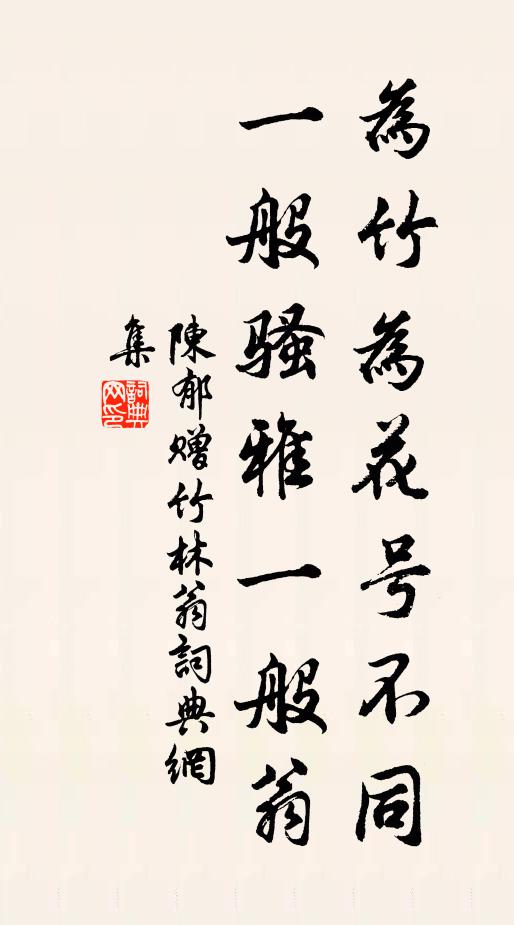 為竹為花号不同
一般骚雅一般翁
陳郁赠竹林翁詞典網
集
詞典
网印